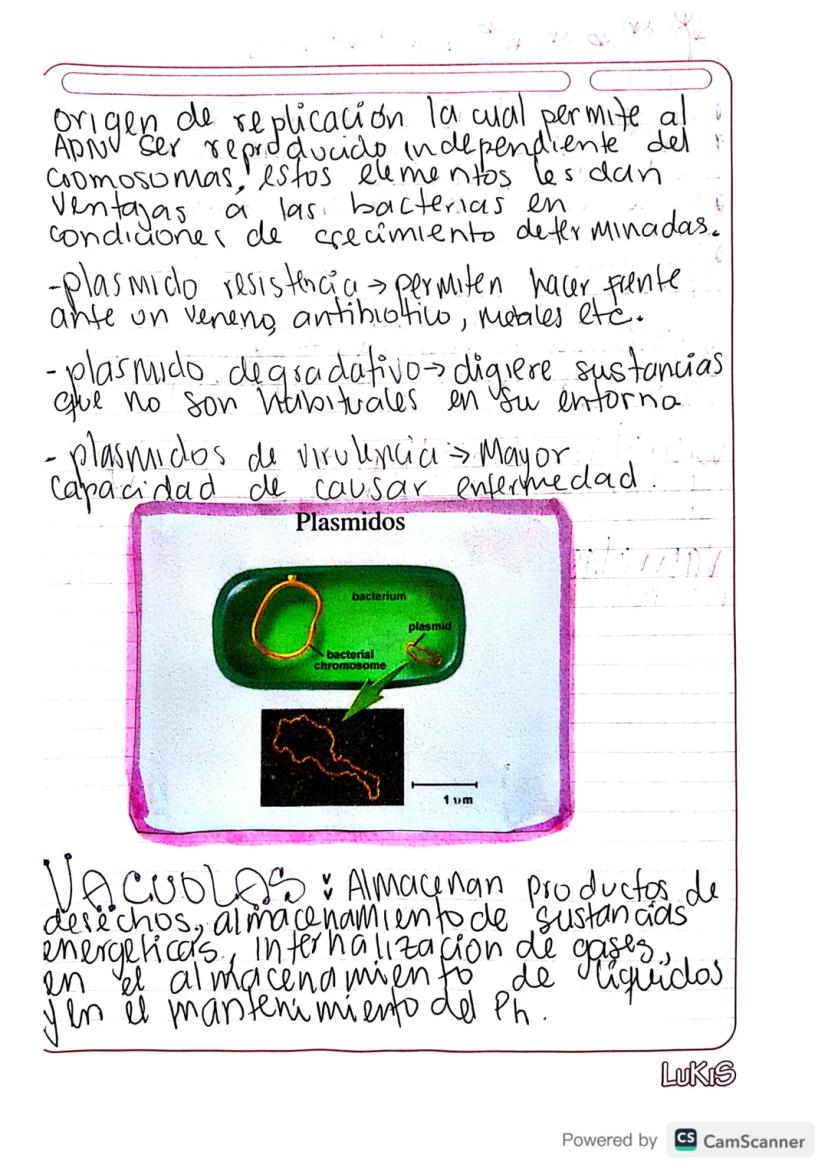 origen de replicación la cual permite al
ADN ser reproducido independiente del
cromosomas, estos elementos les dan
ventajas a las bacterias en
condiciones de crecimiento determinadas.
-plasmido resistencia → permiten hacer frente
ante un veneno, antibiotico, metales etc.
- plasmido degradativo → digiere sustancias
que no son habituales en su entorno
- plasmidos de virulencia → Mayor
capacidad de causar enfermedad.
Plasmidos
bacterium
plasmid
bacterial
chromosome
1 um
VACUOLAS: Almacenan productos de
desechos, almacenamiento de sustancias
energeticas, internalizacion de gases,
en el almacenamiento de liquidos
y en el mantenimiento del Ph.
LUKIS
Powered by CS CamScanner